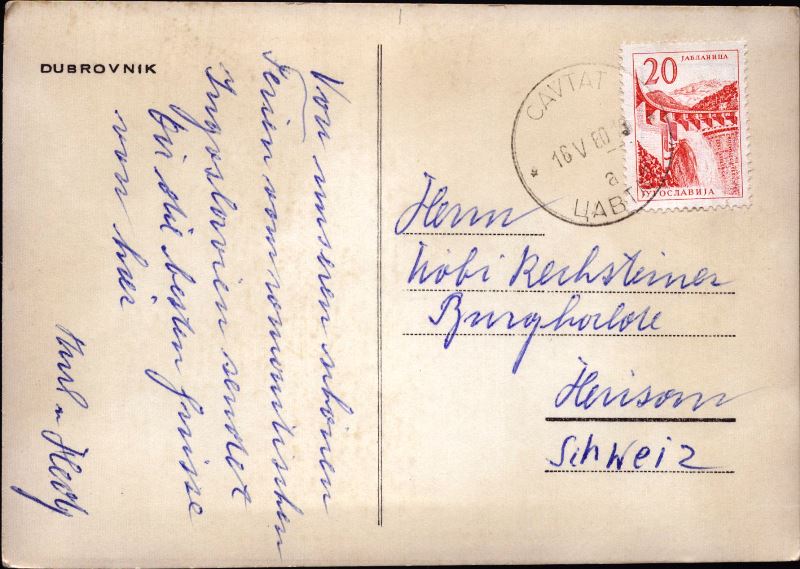 DUBROVNIK
Von unseren schönen
Ferien vom romantischen
Jugoslavien sendet
für die besten Grüsse
von hier
Karl u Hedy
CAVTAT
16 V 60
a
ЦАВТ
20
ЈАБЛАНИЦА
ЈУГОСЛАВИЈА
Herrn
Köbi Rechsteiner
Burghalde
Herisau
Schweiz